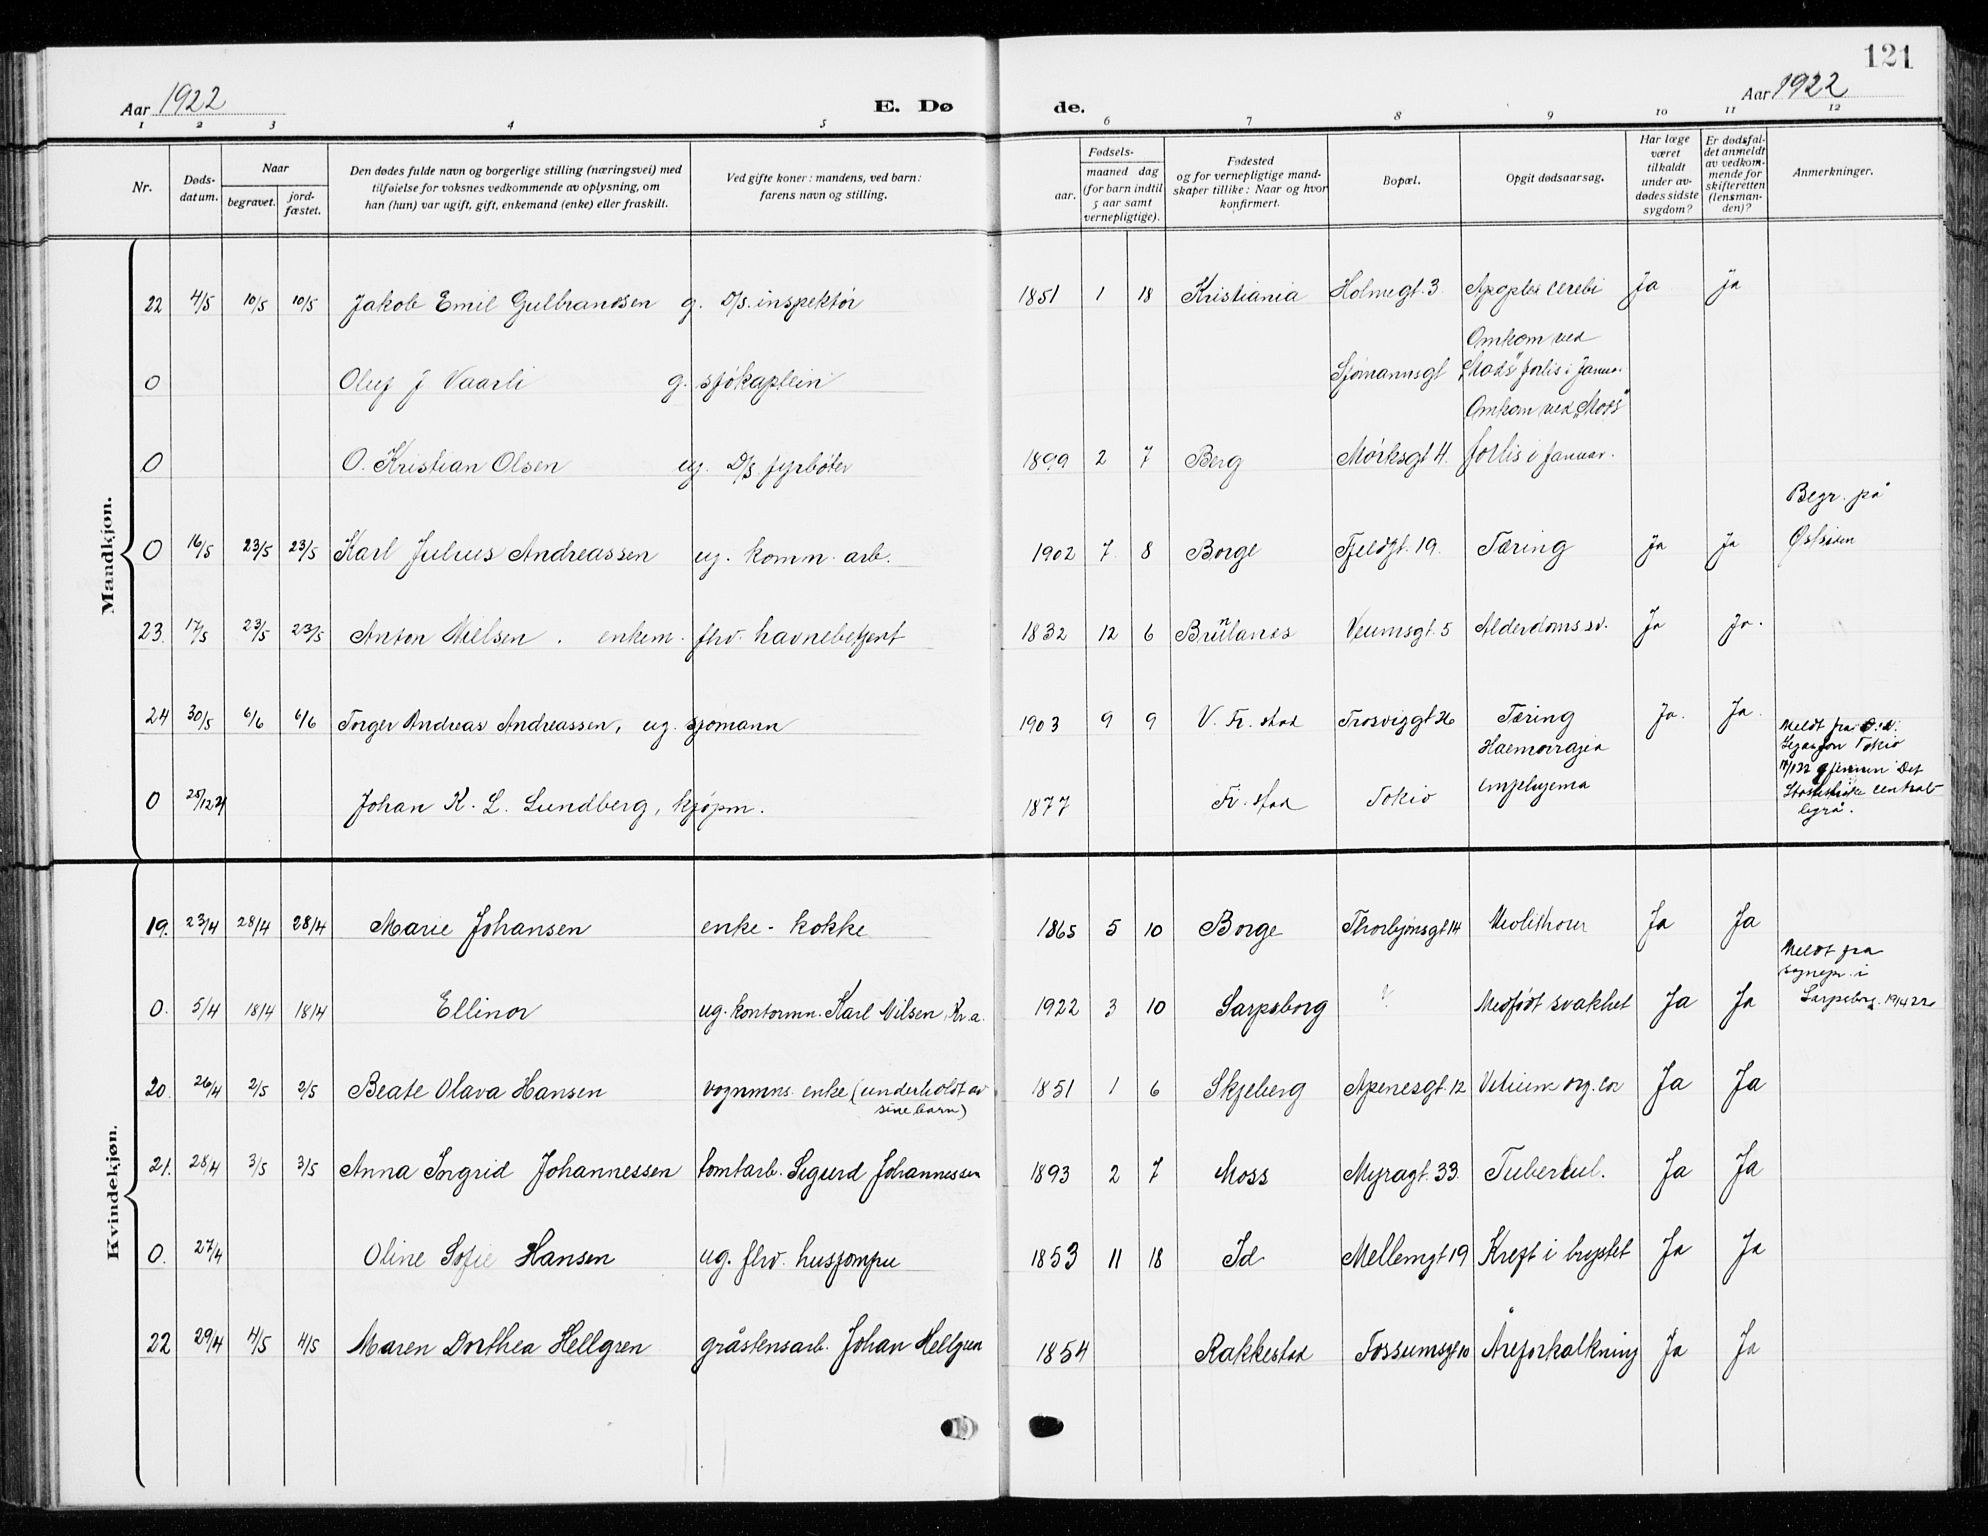 121
Aar 1922
E. Dø de.
Aar 1922
1 2 3 4 5 6 7 8 9 10 11 12
Nr.
Døds-
datum.
Naar
begravet.
jord-
fæstet.
Den dødes fulde navn og borgerlige stilling (næringsvei) med
tilføielse for voksnes vedkommende av oplysning, om
han (hun) var ugift, gift, enkemand (enke) eller fraskilt.
Ved gifte koner: mandens, ved barn:
farens navn og stilling.
Fødsels-
aar.
maaned dag
(for barn indtil
5 aar samt
vernepligtige).
Fødested
og for vernepligtige mand-
skaper tillike: Naar og hvor
konfirmert.
Bopæl.
Opgit dødsaarsag.
Har læge
været
tilkaldt
under av-
dødes sidste
sygdom?
Er dødsfal-
det anmeldt
av vedkom-
mende for
skifteretten
(lensman-
den)?
Anmerkninger.
Mandkjøn.
22 4/5 10/5 10/5 Jakob Emil Gulbrandsen g. D/s. inspektør 1851 1 18 Kristiania Holmegt. 3. Apoplex cerebi Ja Ja
0 Oluf J Vaarli g. sjøkaptein Sjømannsgt Omkom ved
"Mods" forlis i Januar
0 O. Kristian Olsen ug. D/s. fyrbøter 1899 2 7 Berg Mørksgt 4. Omkom ved "Mods"
forlis i Januar.
0 16/5 23/5 23/5 Karl Julius Andreassen ug. komm. arb. 1902 7 8 Borge Fjeldgt. 19. Tæring Ja Ja Begr. på
Østsiden
23. 17/5 23/5 23/5 Anton Nielsen. enkem. fhv. havnebetjent 1832 12 6 Veumsgt. 5 Alderdomssv. Ja Ja.
24 30/5 6/6 6/6 Torger Andreas Andreassen, ug. sjømann 1903 9 9 V. Fr. stad Trosviggt 26 Tæring Ja. Ja.
0 25/12 21 Johan K. L. Lundberg, kjøpm. 1877 Fr. stad Tokio Haemorragia
Meldt fra
Tokio
gjennem Det
Statistiske central-
byrå.
Kvindekjøn.
19. 23/4 28/4 28/4 Marie Johansen enke - kokke 1865 5 10 Borge Thorbjørnsgt 14 Ja Ja
0. 5/4 18/4 18/4 Ellinor ug. kontormn. Karl Nilsen, Kr.a. 1922 3 10 Sarpsborg Medfødt svakhet Ja Ja Meldt fra
sognepr. i
Sarpsborg 19/4 22
20. 26/4 2/5 2/5 Beate Olava Hansen vognmns. enke (underholdt av
sine barn) 1851 1 6 Skjeberg Apenesgt. 12 Vitium org. cor Ja Ja
21. 28/4 3/5 3/5 Anna Ingrid Johannessen tomtarb. Sigurd Johannessen 1893 2 7 Moss Myragt. 33. Tubercul. Ja Ja
0. 27/4 Oline Sofie Hansen ug. fhv. husjomfru 1853 11 18 Id Mellemgt 19 Kreft i brystet Ja Ja
22 29/4 4/5 4/5 Maren Dorthea Hellgren gråstensarb. Johan Hellgren 1854 Rakkestad Fossumsgt 10 Åreforkalkning Ja Ja